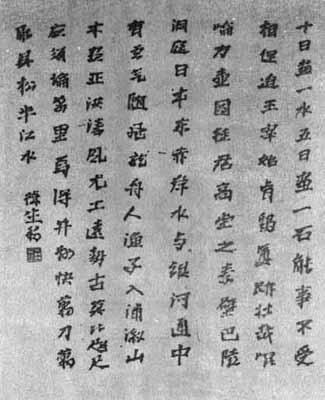 十日畫一水五日畫一石能事不受
相促迫王宰始肯留真跡壯哉崐
崘方壺圖挂君高堂之素壁巴陵
洞庭日本東赤岸水与銀河通中
有雲气隨飛龍舟人漁子入浦漵山
木盡亞洪濤風尤工遠勢古莫比咫尺
應須論萬里焉得并州快剪刀翦
取吳松半江水